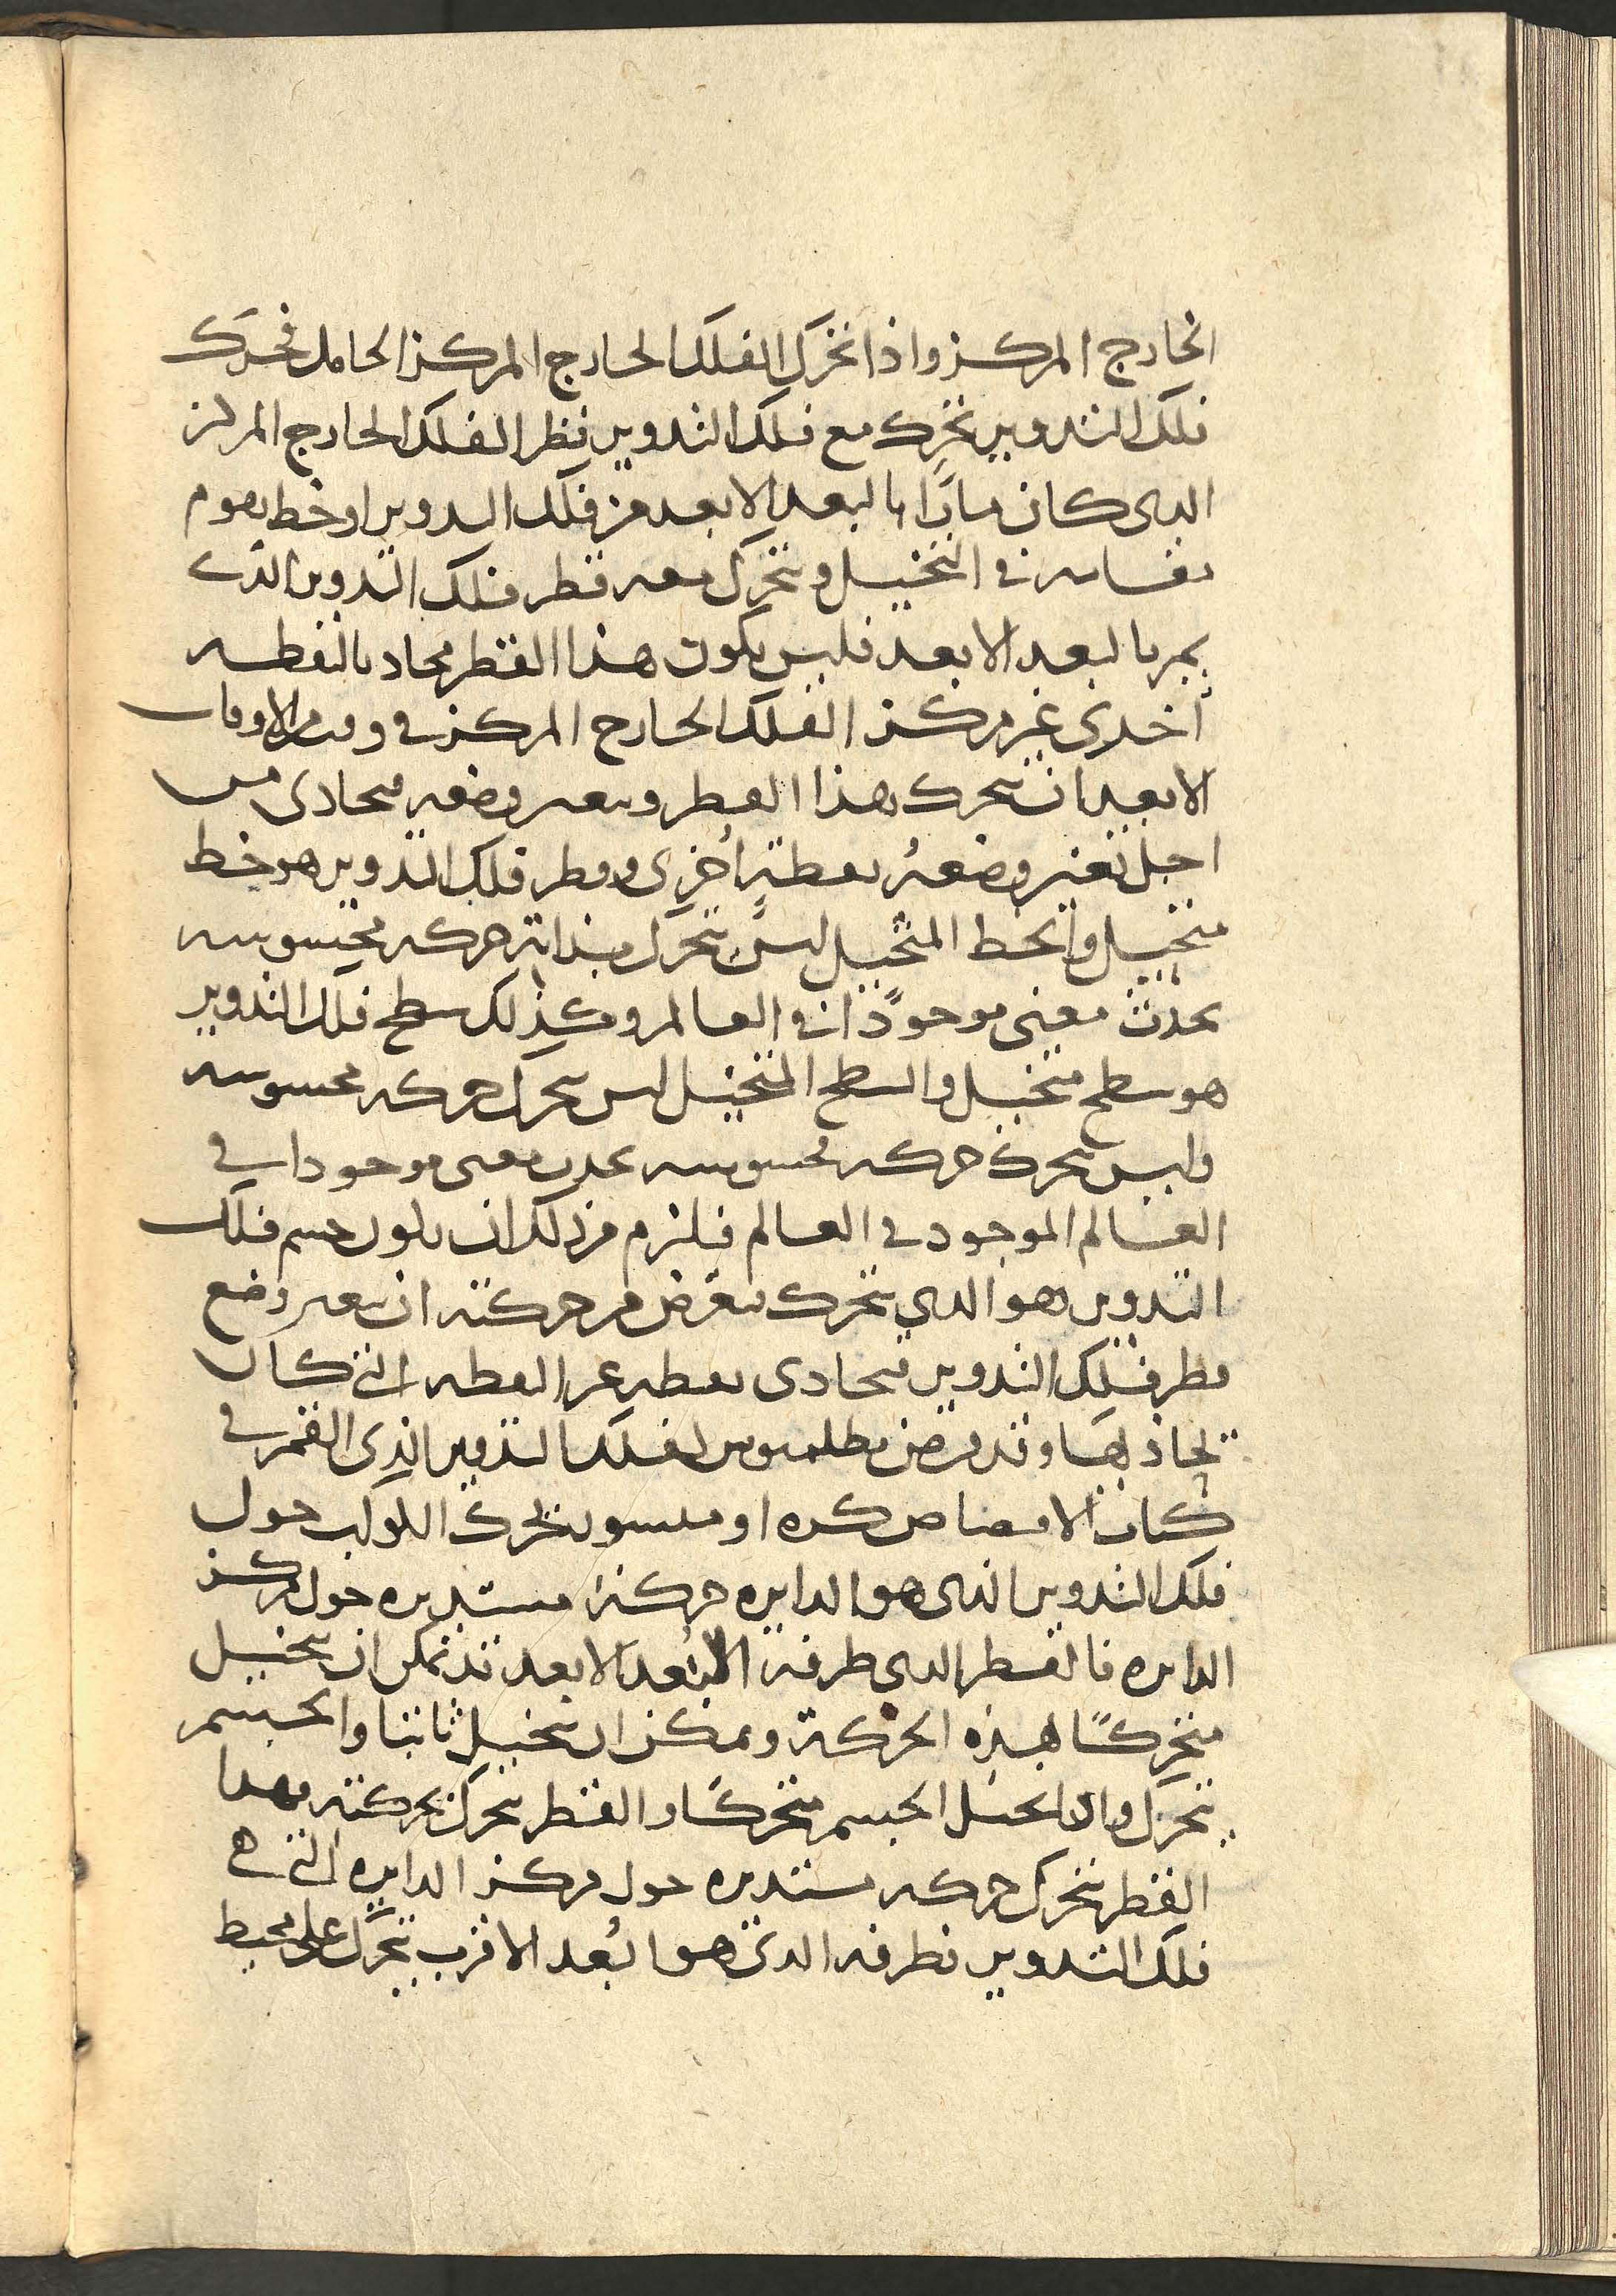 الخارج المركز واذا تحرك الفلك الخارج المركز الحامل فحرك
فلك التدوير تحرك مع فلك التدوير قطر الفلك الخارج المركز
الدى كان مارًا بالبعد الابعد من فلك التدوير او خط يقوم
مقامه في التخيل ويتحرك معه قطر فلك التدوير الذى
يمر بالبعد الابعد فليس يكون هذا القطر محاديا لنقطه
أخرى غير مركز الفلك الخارج المركز في وقت من الاوقات
الا بعد ان يتحرك هذا القطر ويتغير وضعه فيحادى من
اجل تغير وضعه نقطة اُخرى وقطر فلك التدوير هو خط
متخيل والخط المتخيل ليس يتحرك بذاته حركه محسوسه
يحدث معنى موجودًا في العالم وكذلك سطح فلك التدوير
هو سطح متخيل والسطح المتخيل ليس يتحرك حركه محسوسه
وليس يتحرك حركه محسوسه يحدث معنى موجودا في
العالم الموجود في العالم فيلزم من ذلك ان يكون جسم فلك
التدوير هو الدي يتحرك فيعرض من حركته ان يتغير وضع
قطر فلك التدوير فيحادى نقطه غير النقطه التي كان
يحاذيها وقد فرض بطلميوس لفلك التدوير الذى القمر في
كتاب الاقتصاص كره او منشور يتحرك الكوكب حول
فلك التدوير الدى هو الدايره حركة مستديره حول مركز
الدايره فالقطر الدى طرفه البُعد الابعد قد يمكن ان يتخيل
متحركًا بهذه الحركة ويمكن ان يتخيل ثابتا والجسم
يتحرك واذا تخيل الجسم متحركًا والقطر يتحرك بحركته فهذا
القطر يتحرك حركه مستديره حول مركز الدايره التي هي
فلك التدوير فطرفه الدى هو البُعد الاقرب يتحرك على محيط